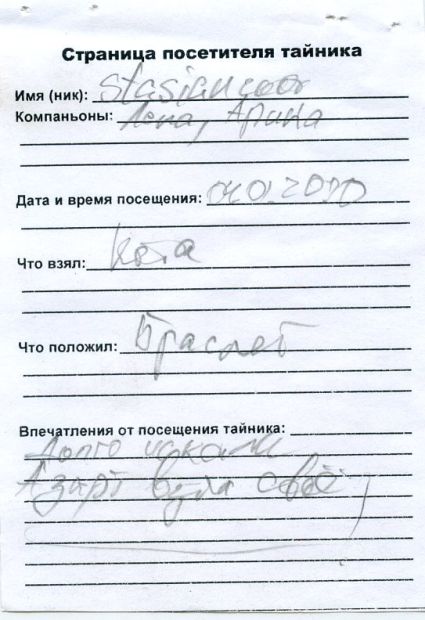 Страница посетителя тайника
Имя (ник):
Компаньоны: Лена, Арина
Дата и время посещения:
Что взял: Кота
Что положил: Браслет
Впечатления от посещения тайника:
Долго искали
Азарт взял своё